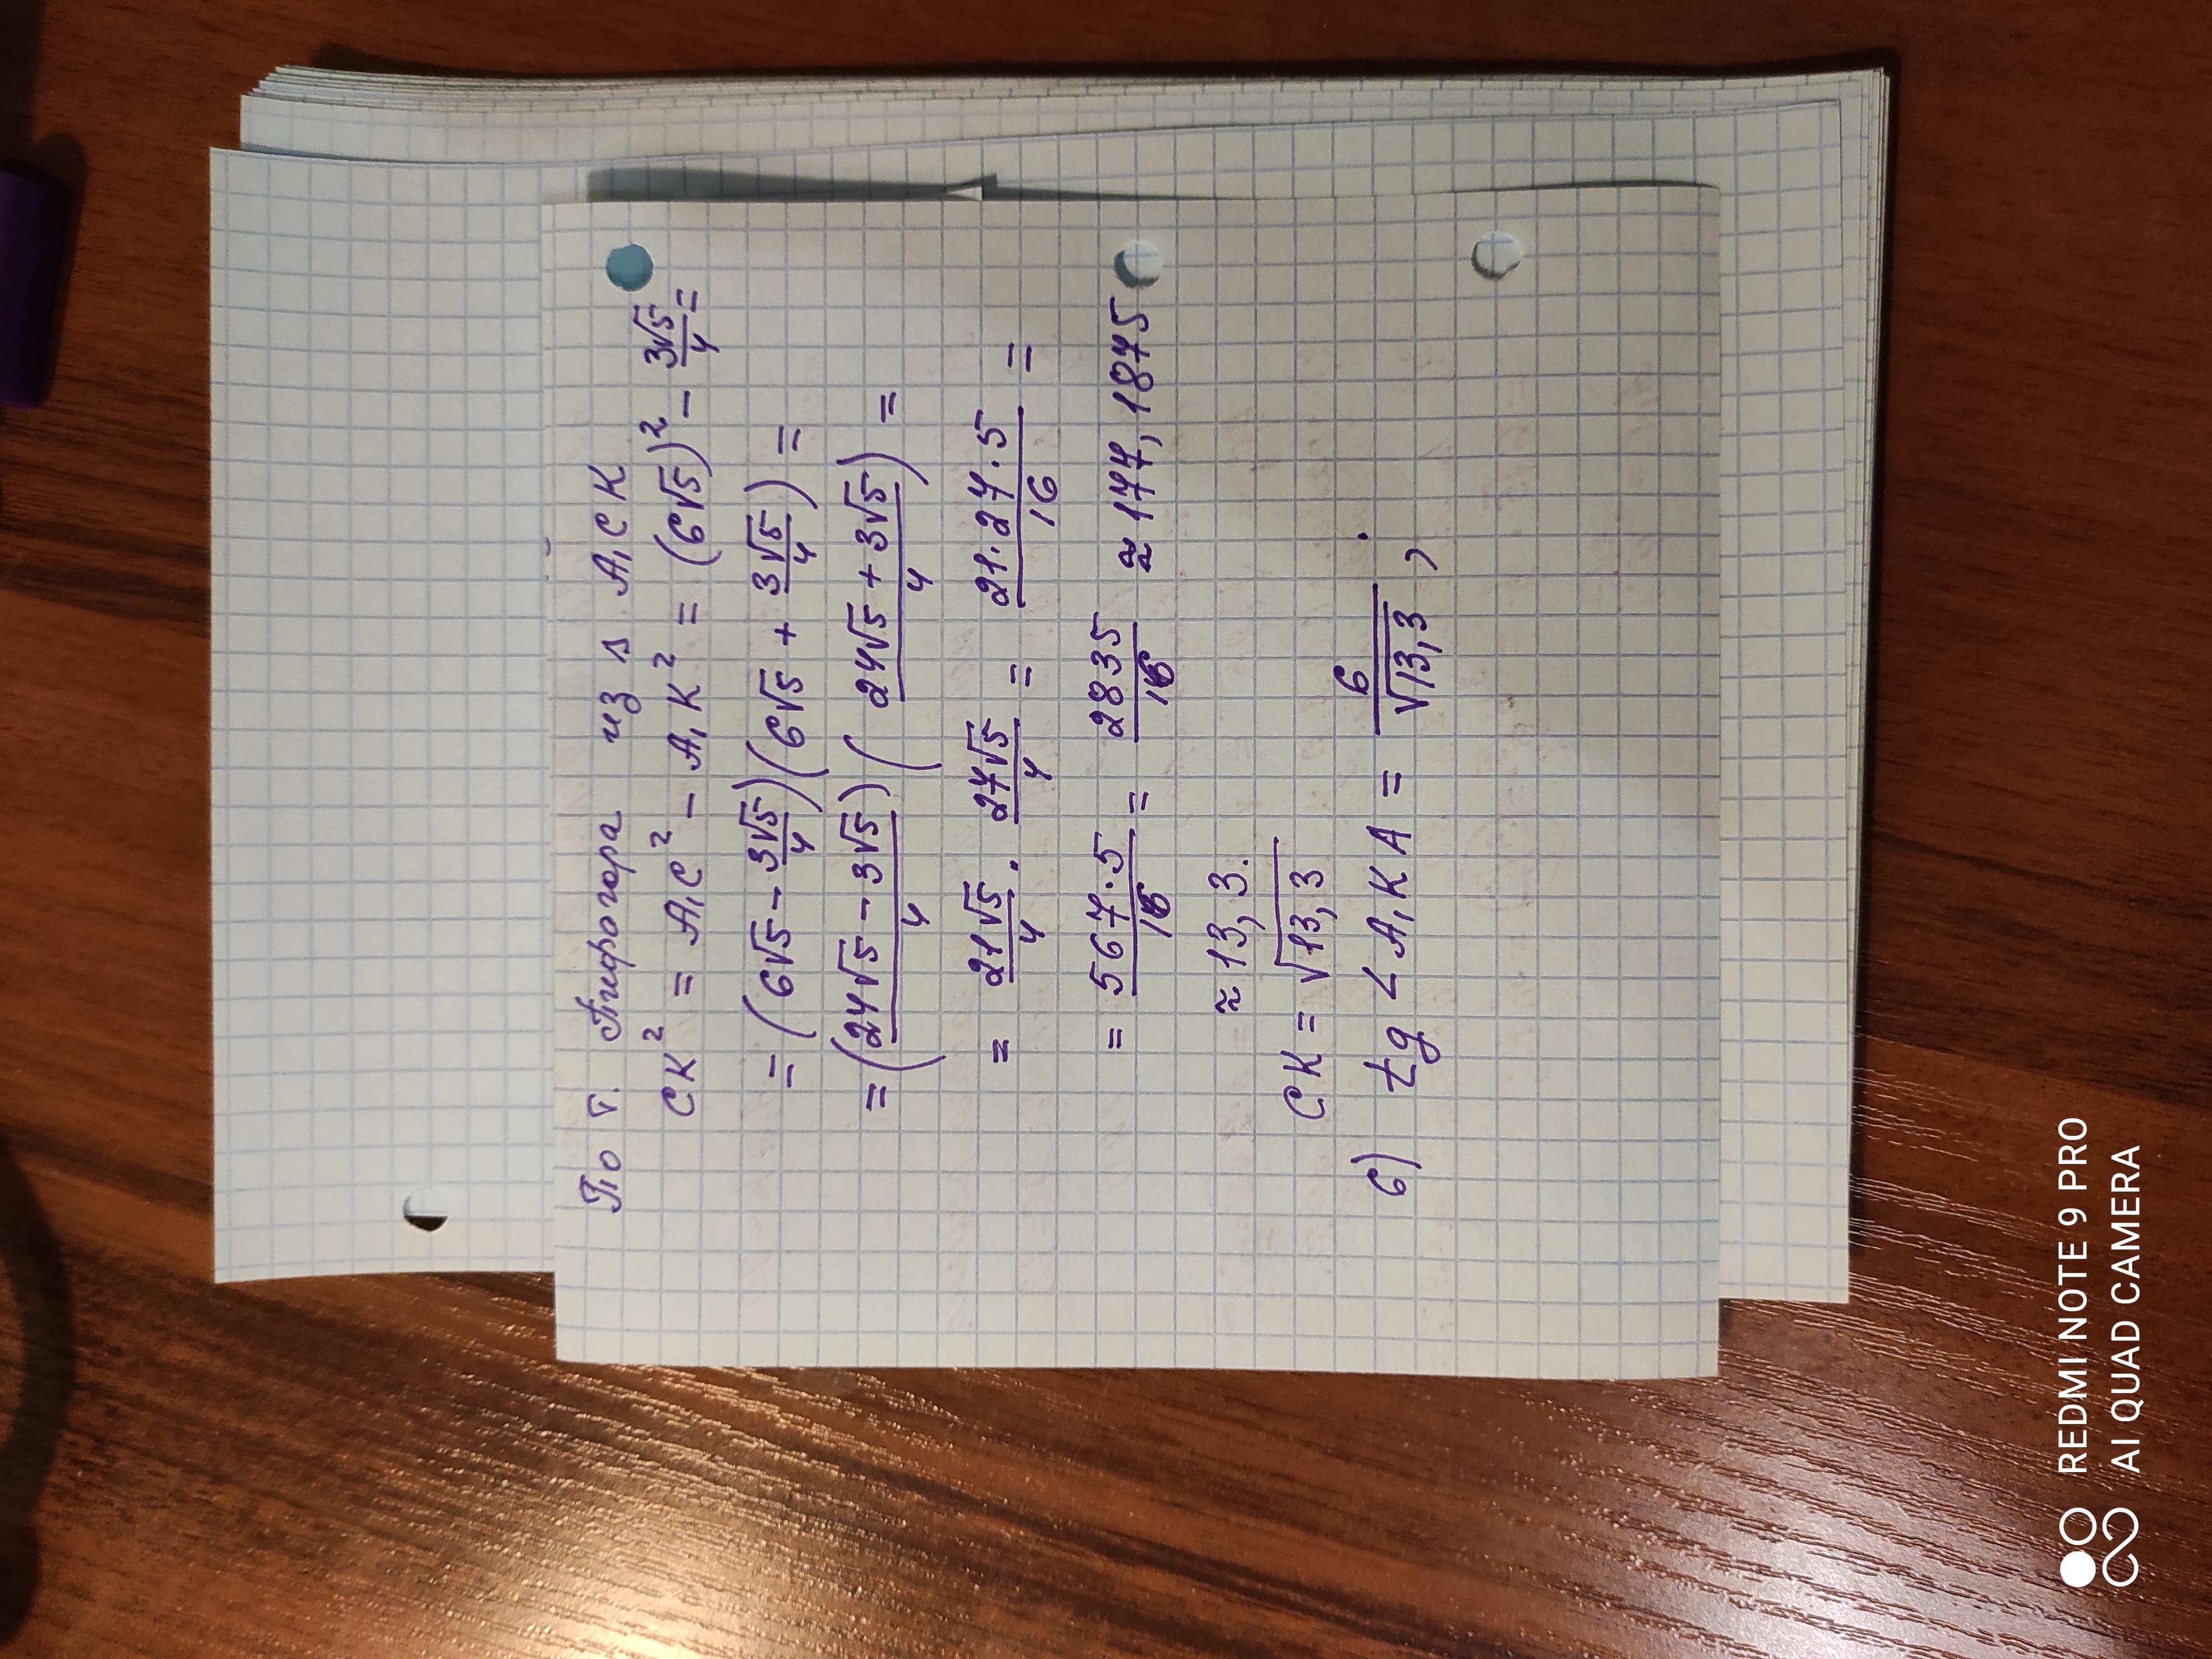 По т. Пифогора из △ A₁CK
CK² = A₁C² − A₁K² = (6√5)² − 3√5/4 =
= (6√5 − 3√5/4)(6√5 + 3√5/4) =
= (24√5 − 3√5/4)(24√5 + 3√5/4) =
= 21√5/4 · 27√5/4 = 21·27·5/16 =
= 567·5/16 = 2835/16 ≈ 177,1875
≈ 13,3.
CK = √13,3
6) tg ∠A₁KA = 6/√13,3,
REDMI NOTE 9 PRO
AI QUAD CAMERA